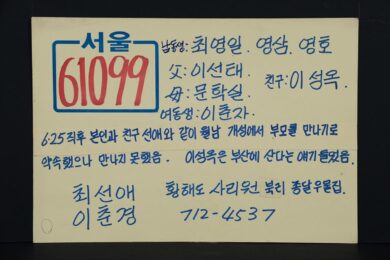 서울
61099
남동생: 최영일. 영삼. 영호
父: 이선태
친구: 이성옥.
母: 문학실.
여동생: 이춘자.
6.25 직후 본인과 친구 선애와 같이 월남 개성에서 부모를 만나기로
약속했으나 만나지 못했음. 이성옥은 부산에 산다는 얘기들었음.
최선애 황해도 사리원 북리 종달우물집.
이춘경 712-4537